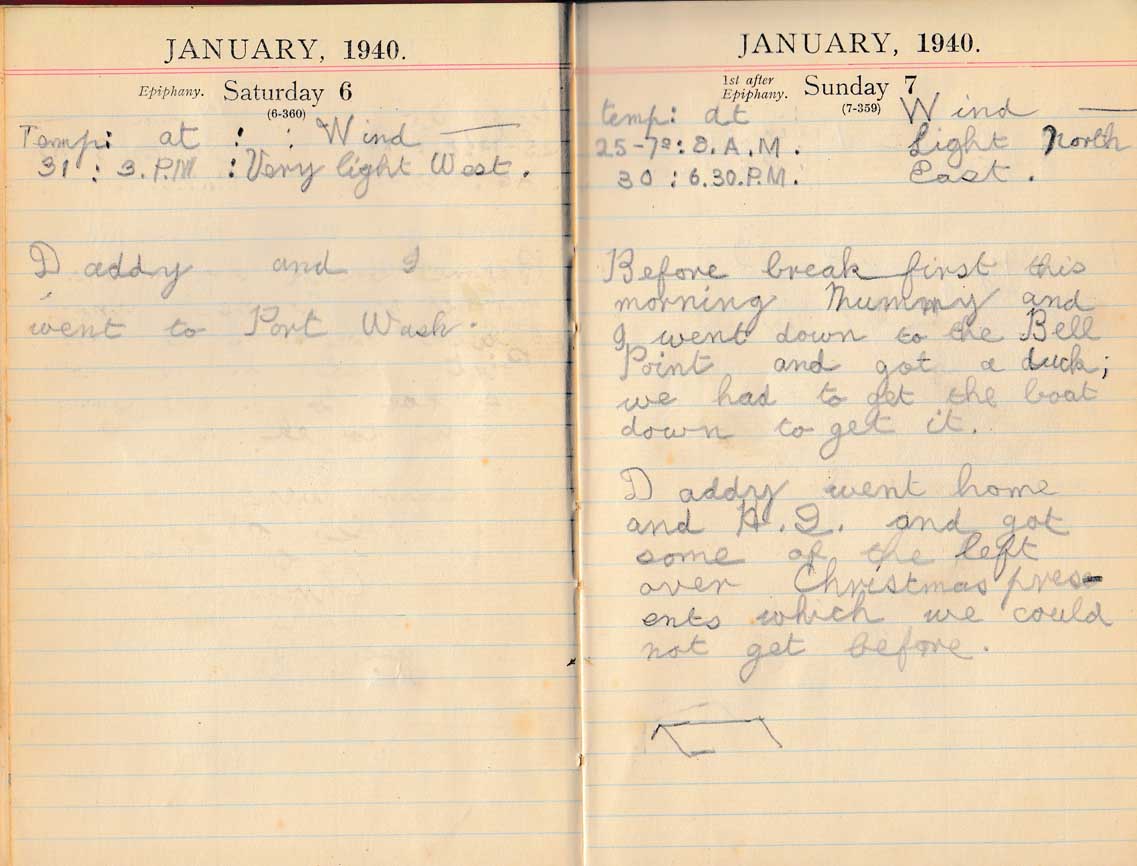 JANUARY, 1940.
Epiphany. Saturday 6
(6-360)
Temp: at : : Wind —
31 : 3.P.M : Very light West.
Daddy and I
went to Port Wash.
JANUARY, 1940.
1st after
Epiphany. Sunday 7
(7-359)
temp: at Wind —
25-7º: 8.A.M. Light North
30 : 6.30.P.M. East.
Before break first this
morning Mummy and
I went down to the Bell
Point and got a duck;
we had to get the boat
down to get it.
Daddy went home
and and got
some of the left
over Christmas pres-
ents which we could
not get before.